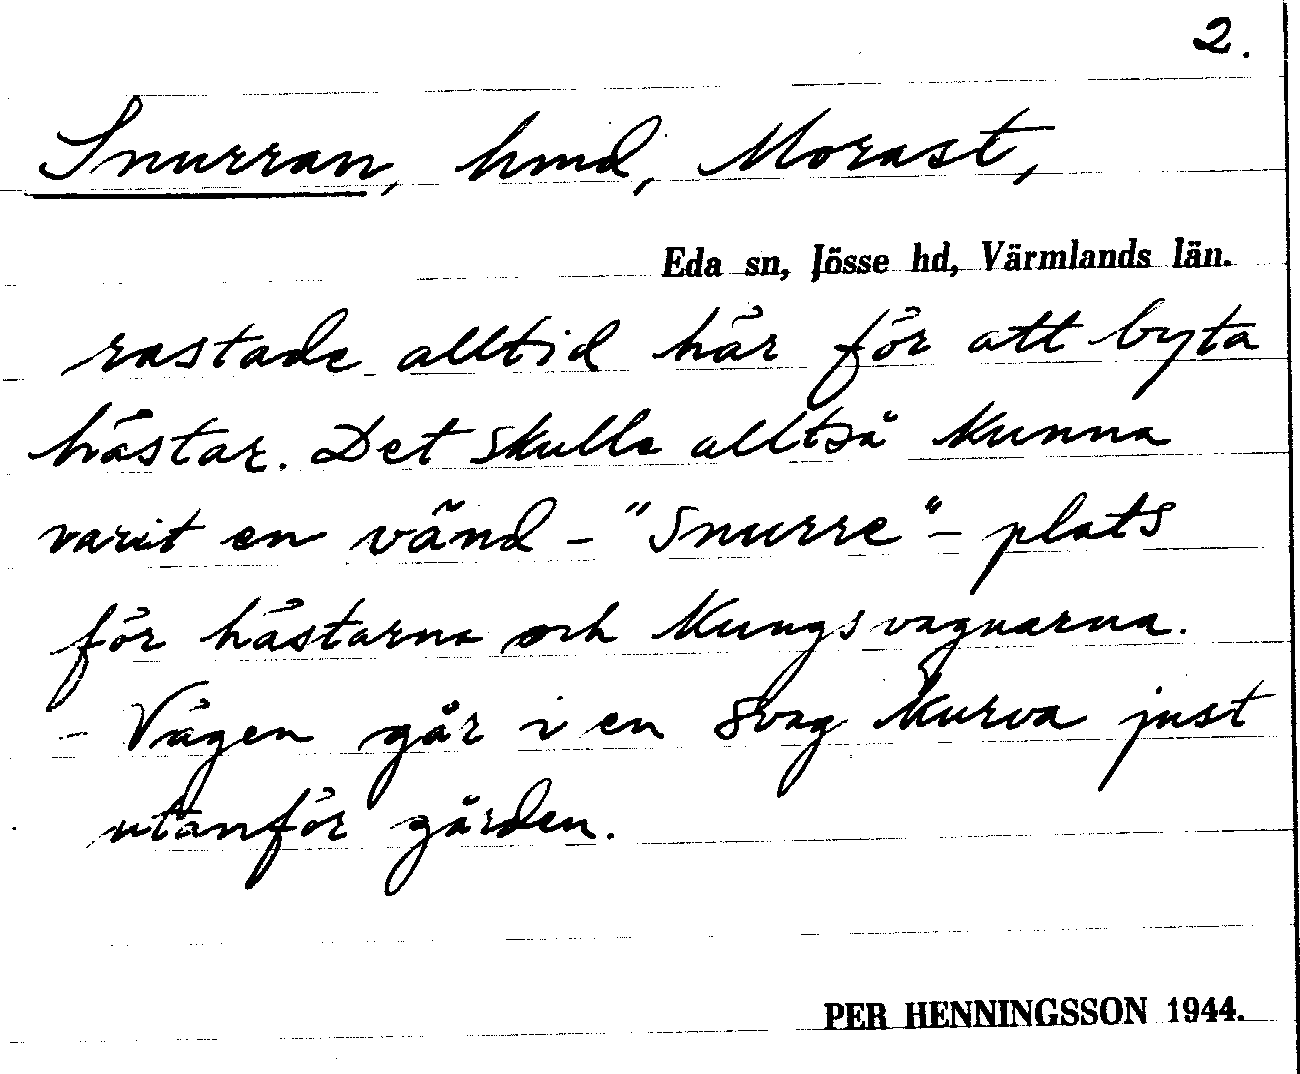 2.
Snurran, hmd, Morast,
Eda sn, Jösse hd, Värmlands län.
rastade alltid här för att byta
hästar. Det skulle alltså kunna
varit en vänd - "Snurre" - plats
för hästarna och kungsvagnarna.
- Vägen går i en svag kurva just
utanför gården.
PER HENNINGSSON 1944.